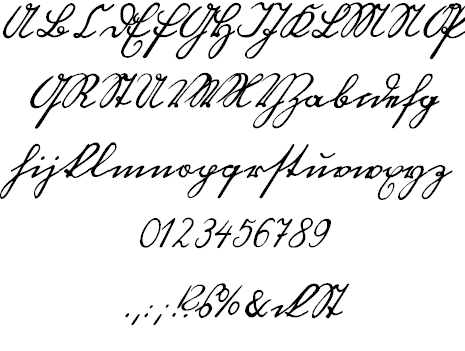 ABCDEFGHIJKLMNOP
QRSTUVWXYZabcdefg
hijklmnopqrstuvwxyz
0123456789
.,:;!?
%&